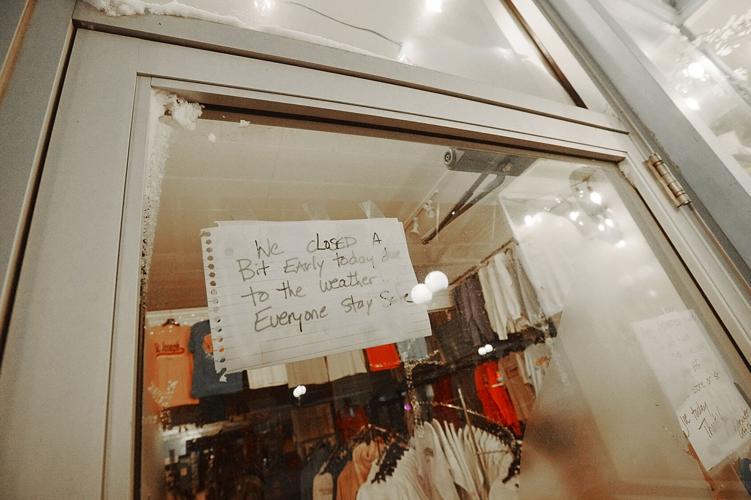 We CLOSED A
Bit Early today due
to the weather..
Everyone stay Safe
St. Joseph
today